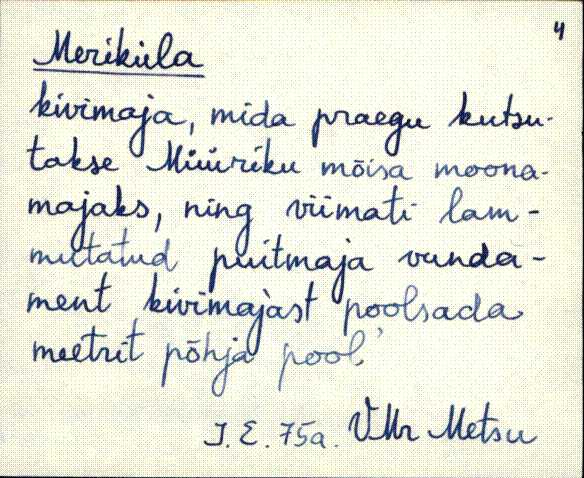 4
Meriküla
kivimaja, mida praegu kutsu-
takse Müüriku mõisa moona-
majaks, ning viimati lam-
mutatud puitmaja vunda-
ment kivimajast poolsada
meetrit põhja pool."
J. E. 75a. VMr Metsu